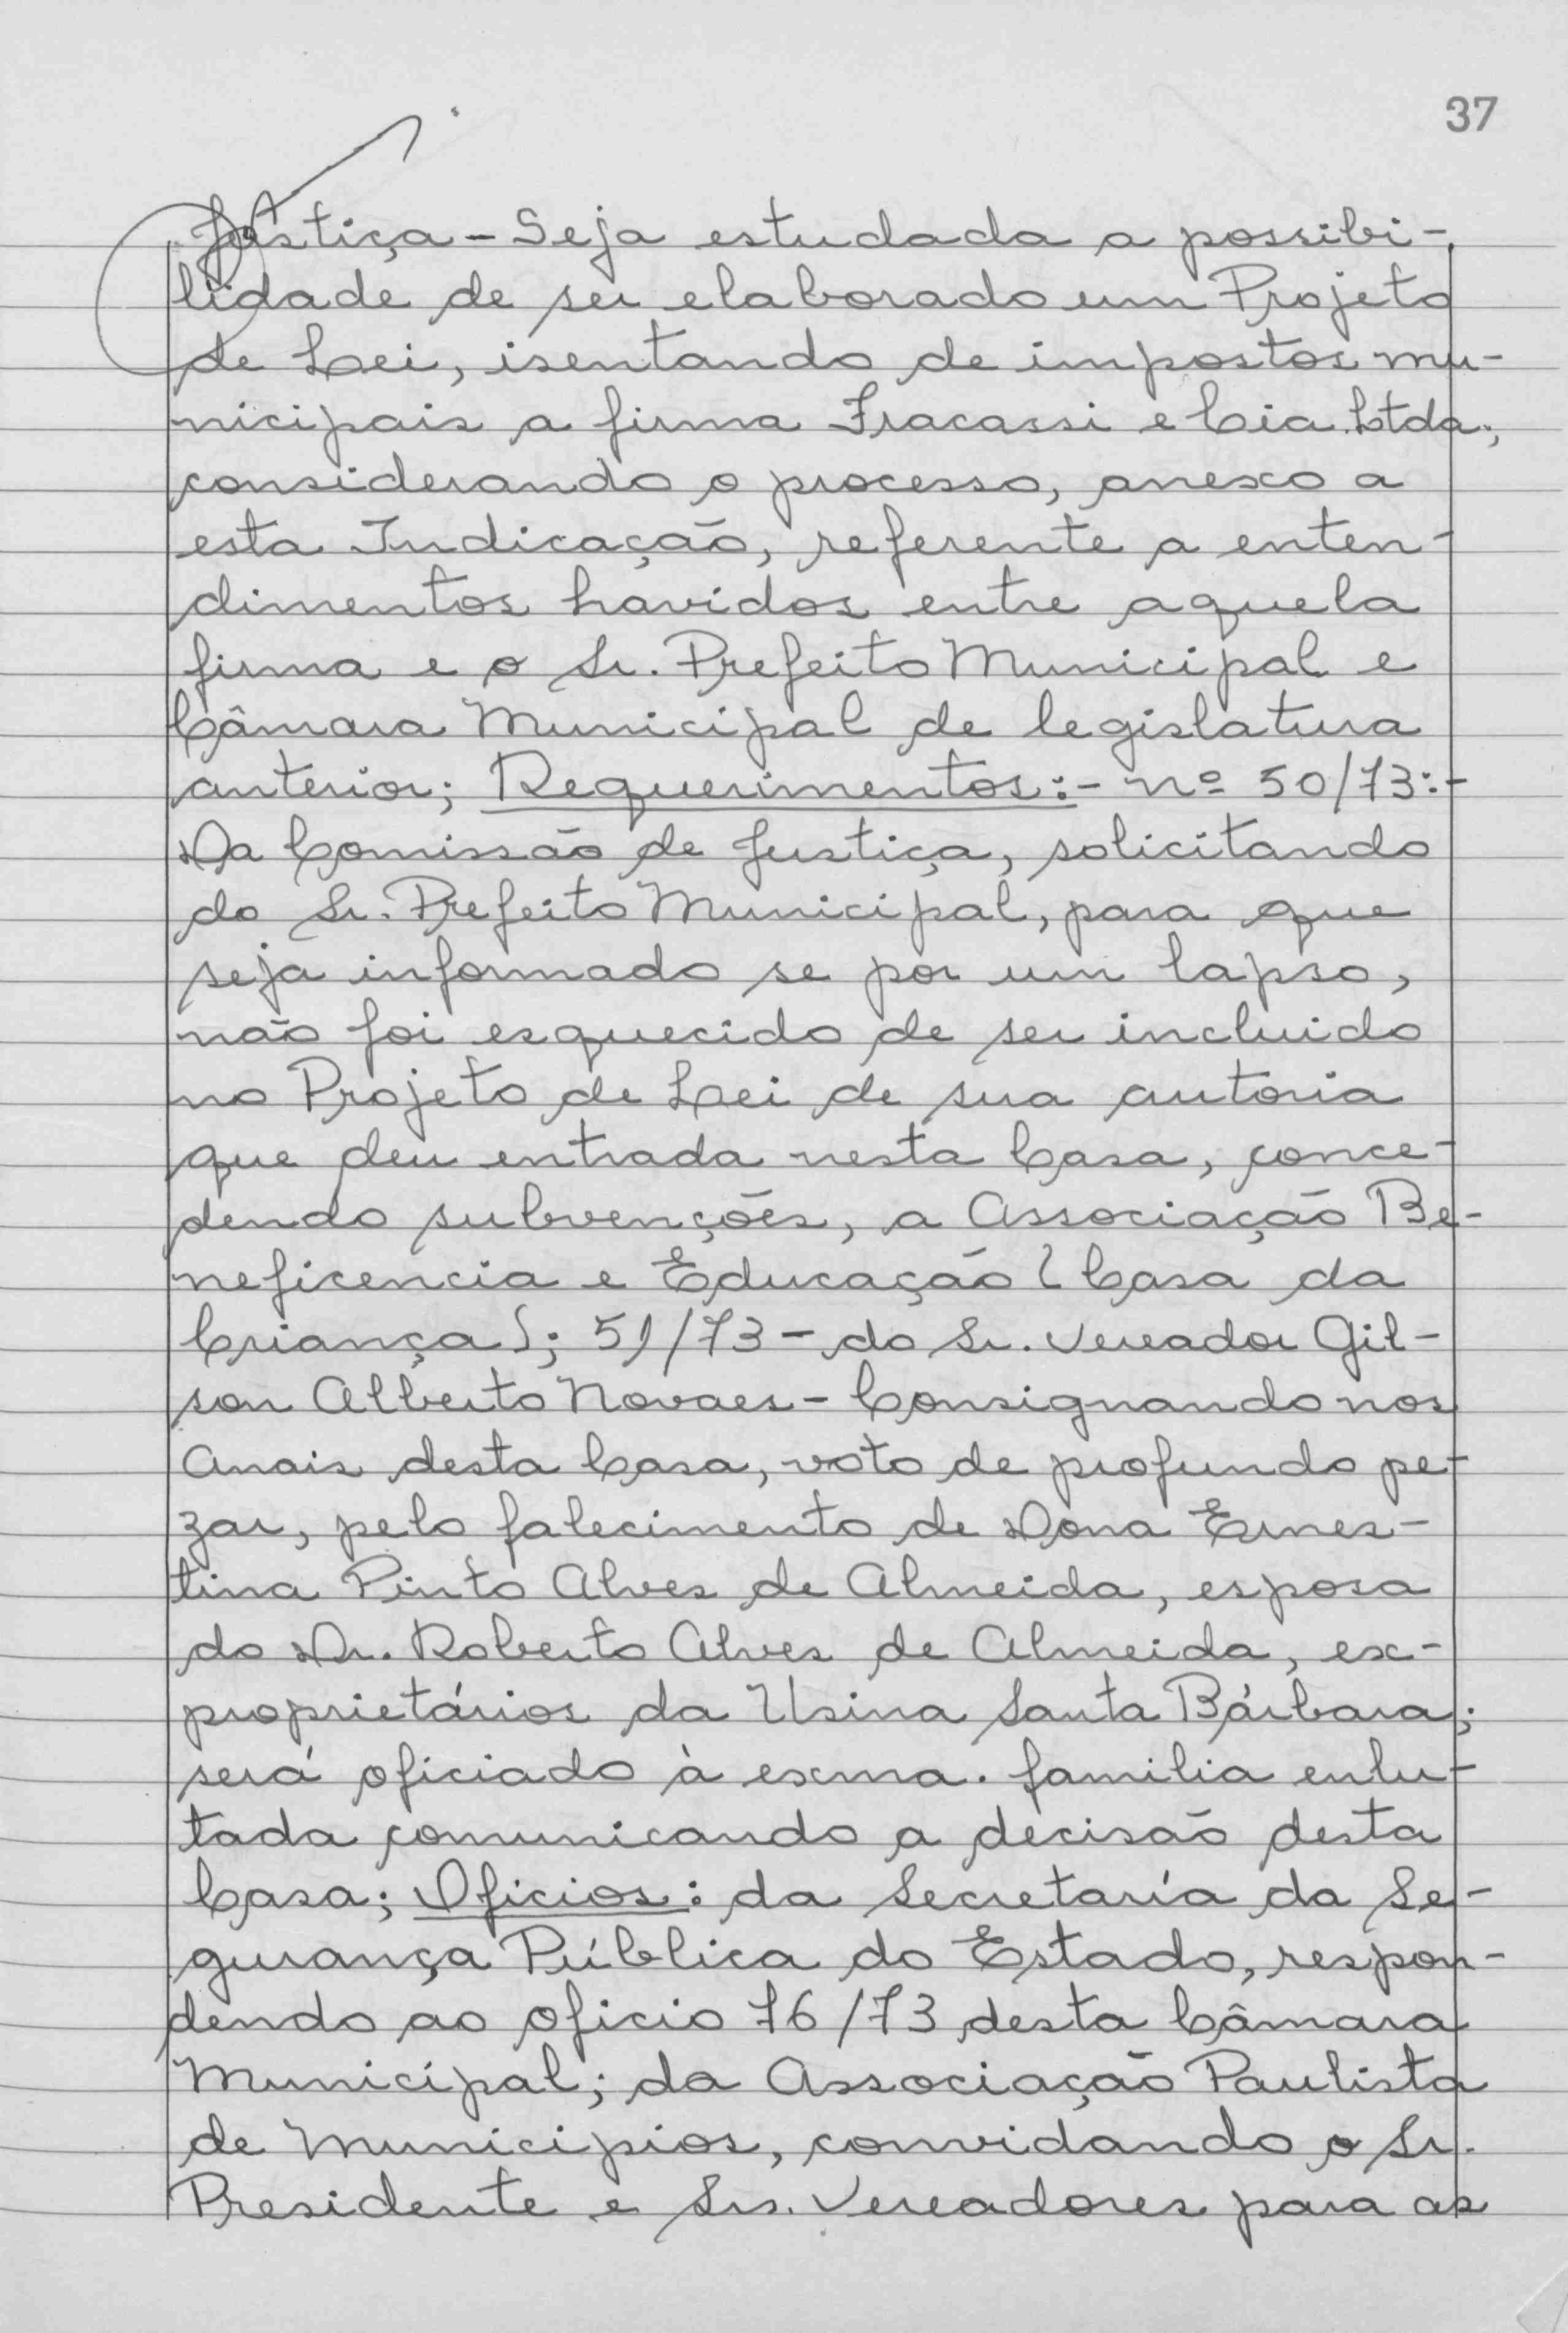 37
Justiça - Seja estudada a possibi-
lidade de ser elaborado um Projeto
de Lei, isentando de impostos mu-
nicipais a firma Fracassi e Cia. Ltda.,
considerando o processo, anexo a
esta Indicação, referente a enten-
dimentos havidos entre aquela
firma e o Sr. Prefeito Municipal e
Câmara Municipal de legislatura
anterior; Requerimentos:- nº 50/73:-
Da Comissão de Justiça, solicitando
do Sr. Prefeito Municipal, para que
seja informado se por um lapso,
não foi esquecido de ser incluido
no Projeto de Lei de sua autoria
que deu entrada nesta Casa, conce-
dendo subvenções, a Associação Be-
neficencia e Educação (Casa da
Criança); 51/73 - do Sr. Vereador Gil-
son Alberto Novaes - Consignando nos
Anais desta Casa, voto de profundo pe-
zar, pelo falecimento de Dona Ernes-
tina Pinto Alves de Almeida, esposa
do Dr. Roberto Alves de Almeida, ex-
proprietários da Usina Santa Bárbara;
será oficiado à exma. familia enlu-
tada comunicando a decisão desta
Casa; Oficios: da Secretaria da Se-
gurança Pública do Estado, respon-
dendo ao oficio 76/73 desta Câmara
Municipal; da Associação Paulista
de Municipios, convidando o Sr.
Presidente e Srs. Vereadores para as